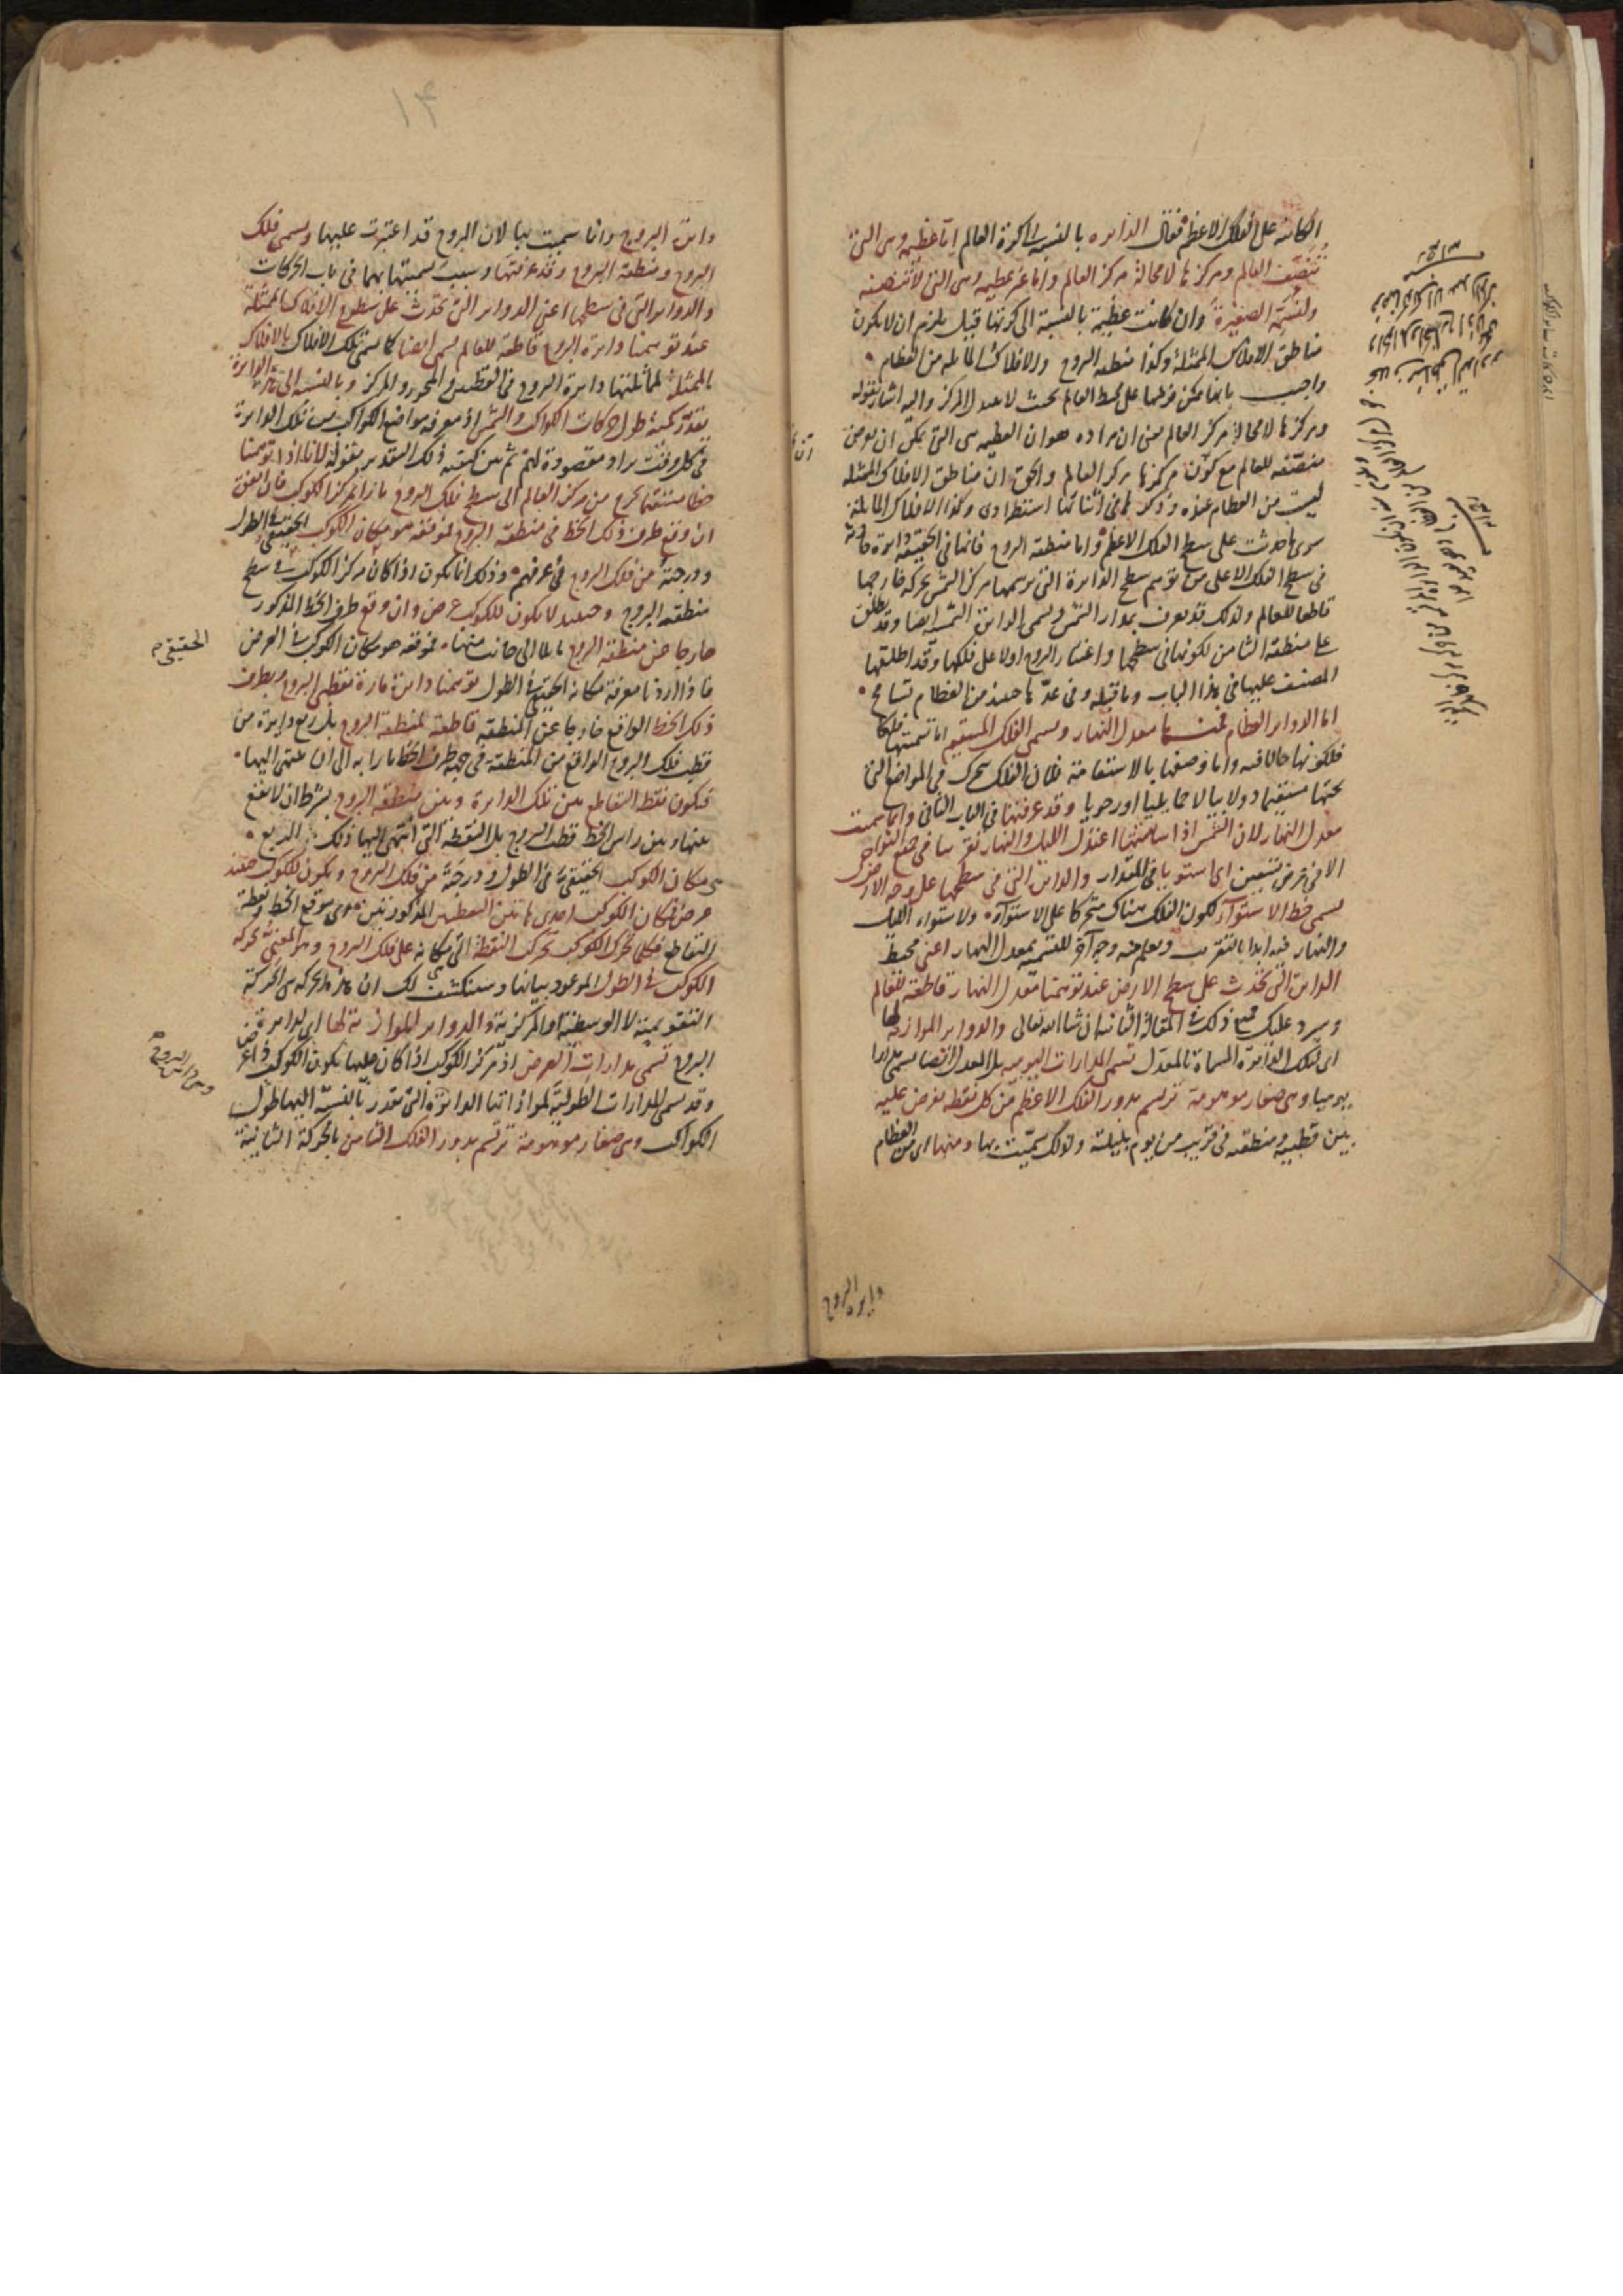 الكائنة على الفلك الاعظم فقال الدائره بالنسبة الى كرة العالم اما عظيمة وهى التى
تنصف العالم ومركزها لا محالة مركز العالم واما غير عظيمه وهى التى لا تنصفه
ولنسمّه الصغيرة وان كانت عظيمة بالنسبة الى كرتها قيل يلزم ان لا يكون
مناطق الافلاك الممثلة وكذا منطقه البروج والافلاك المايله من العظام
واجيب بانها يمكن فرضها على محيط العالم بحيث لا عبد المركز واليه اشار بقوله
ومركزها لا محالة مركز العالم يعنى ان مراده هو ان العظيمه هى التى يمكن ان يفرض
منصفه للعالم مع كون مركزها مركز العالم والحق ان مناطق الافلاك الممثله
ليست من العظام عنده وذكرها فى اثنائها استطرادى وكذا الافلاك المايلة
سوى ما حدثت على سطح الفلك الاعظم واما منطقه البروج فانها فى الحقيقه دائرة حادثة
فى سطح الفلك الاعلى من توهم سطح الدائرة التى يرسمها مركز الشمس بحركة خارجها
قاطعا للعالم ولذلك قد يعرف بمدار الشمس ويسمى الدائرة الشمسيه ايضا وقد يطلق
على منطقة الثامن لكونها فى سطحها واعتبار البروج اولا على فلكها وقد اطلقها
المصنف عليها فى هذا الباب وما قبله وفى عدّها حينئذ من العظام تسامح
اما الدوائر العظام فمنها معدل النهار ويسمى الفلك المستقيم اما تسميتها فلكا
فلكونها حالا فيه واما وصفها بالاستقامة فلان الفلك يتحرك فى المواضع التى
تحتها مستقيما دولابيا لا حمايليا او رحويا وقد عرفتها فى الباب الثانى وانما سميت
معدل النهار لان الشمس اذا سامتتها اعتدل الليل والنهار تقريبا فى جميع النواحى
الا فى عرض تسعين اى استويا فى المقدار والدائرة التى فى سطحها على وجه الارض
تسمى خط الاستوآء لكون الفلك هناك متحركا على الاستوآء ولاستواء الليل
والنهار فيه ابدا بالتقريب ويعلم منه وجه آخر للتسمية بمعدل النهار اعنى محيط
الدائرة التى تحدث على سطح الارض عند توهمنا معدل النهار قاطعة للعالم
وسيرد عليك جميع ذلك فى المقالة الثانيه ان شاء الله تعالى والدوائر الموازية لها
اى لتلك الدائرة المسماة بالمعدل تسمى المدارات اليوميه بل المعدل ايضا يسمى مدارا
يوميا وهى صغار موهومة ترتسم بدور الفلك الاعظم من كل نقطه تفرض عليه
بين قطبيه ومنطقته فى قريب من يوم بليلته ولذلك سميت بها ومنها اى من العظام
دايره البروج
دائرة البروج وانما سميت بها لان البروج قد اعتبرت عليها ويسمى فلك
البروج ومنطقة البروج وقد عرفتها وسبب تسميتها بهما فى باب الحركات
والدوائر التى فى سطحها اعنى الدوائر التى تحدث على سطوح الافلاك الممثلة
عند توهمنا دائرة البروج قاطعة للعالم يسمى ايضا كما سمى تلك الافلاك بالافلاك
الممثلة لمماثلتها دائرة البروج فى القطبين والمحور والمركز وبالنسبه الى هذه الدايرة
تقدر كمية طول حركات الكواكب والشمس اذ معرفة مواضع الكواكب من تلك الدايرة
فى كل وقت يراد مقصودة لهم ثم بين كيفية ذلك التقدير بقوله لانا اذا توهمنا
خطا مستقيما يخرج من مركز العالم الى سطح فلك البروج مارا بمركز الكوكب فان اتفق
ان وقع طرف ذلك الخط فى منطقة البروج فموقعه هو مكان الكوكب الحقيقى فى الطول
ودرجته من فلك البروج فى عرفهم وذلك انما يكون اذا كان مركز الكوكب فى سطح
منطقه البروج وحينئذ لا يكون للكوكب عرض وان وقع طرف الخط المذكور
خارجا عن منطقة البروج مايلا الى جانب منها فموقعه هو مكان الكوكب فى العرض
الحقيقى
فاذا اردنا معرفة مكانه الحقيقى فى الطول توهمنا دائرة مارة بقطبى البروج وبطرف
ذلك الخط الواقع خارجا عن المنطقه قاطعة لمنطقة البروج بل ربع دايرة من
قطب فلك البروج الواقع من المنطقة فى جهة طرف الخط مارا به الى ان ينتهى اليها
فيكون نقطة التقاطع بين تلك الدائرة وبين منطقة البروج بشرط ان لا يقع
بينها وبين راس الخط قطب البروج بل النقطة التى انتهى اليها ذلك الربع
هى مكان الكوكب الحقيقى فى الطول ودرجته من فلك البروج ويكون للكوكب حينئذ
عرض فمكان الكوكب احدى هاتين النقطتين المذكورتين اعنى موقع الخط ونقطة
التقاطع فكلما تحرك الكوكب تحركت النقطة التى هى مكانه على فلك البروج وهو المعنى بحركه
الكوكب فى الطول الموعود بيانها وسينكشف لك ان هذه الحركه هى الحركة
التقويمية لا الوسطية او المركزية والدوائر الموازية لها اى لدايرة
البروج تسمى مدارات العرض اذ مركز الكوكب اذا كان عليها يكون الكوكب ذا عرض
وقد تسمى المدارات الطولية لموازاتها الدائرة التى تقدر بالنسبة اليها طول
الكواكب وهى صغار موهومة ترتسم بدور الفلك الثامن بالحركة الثانية